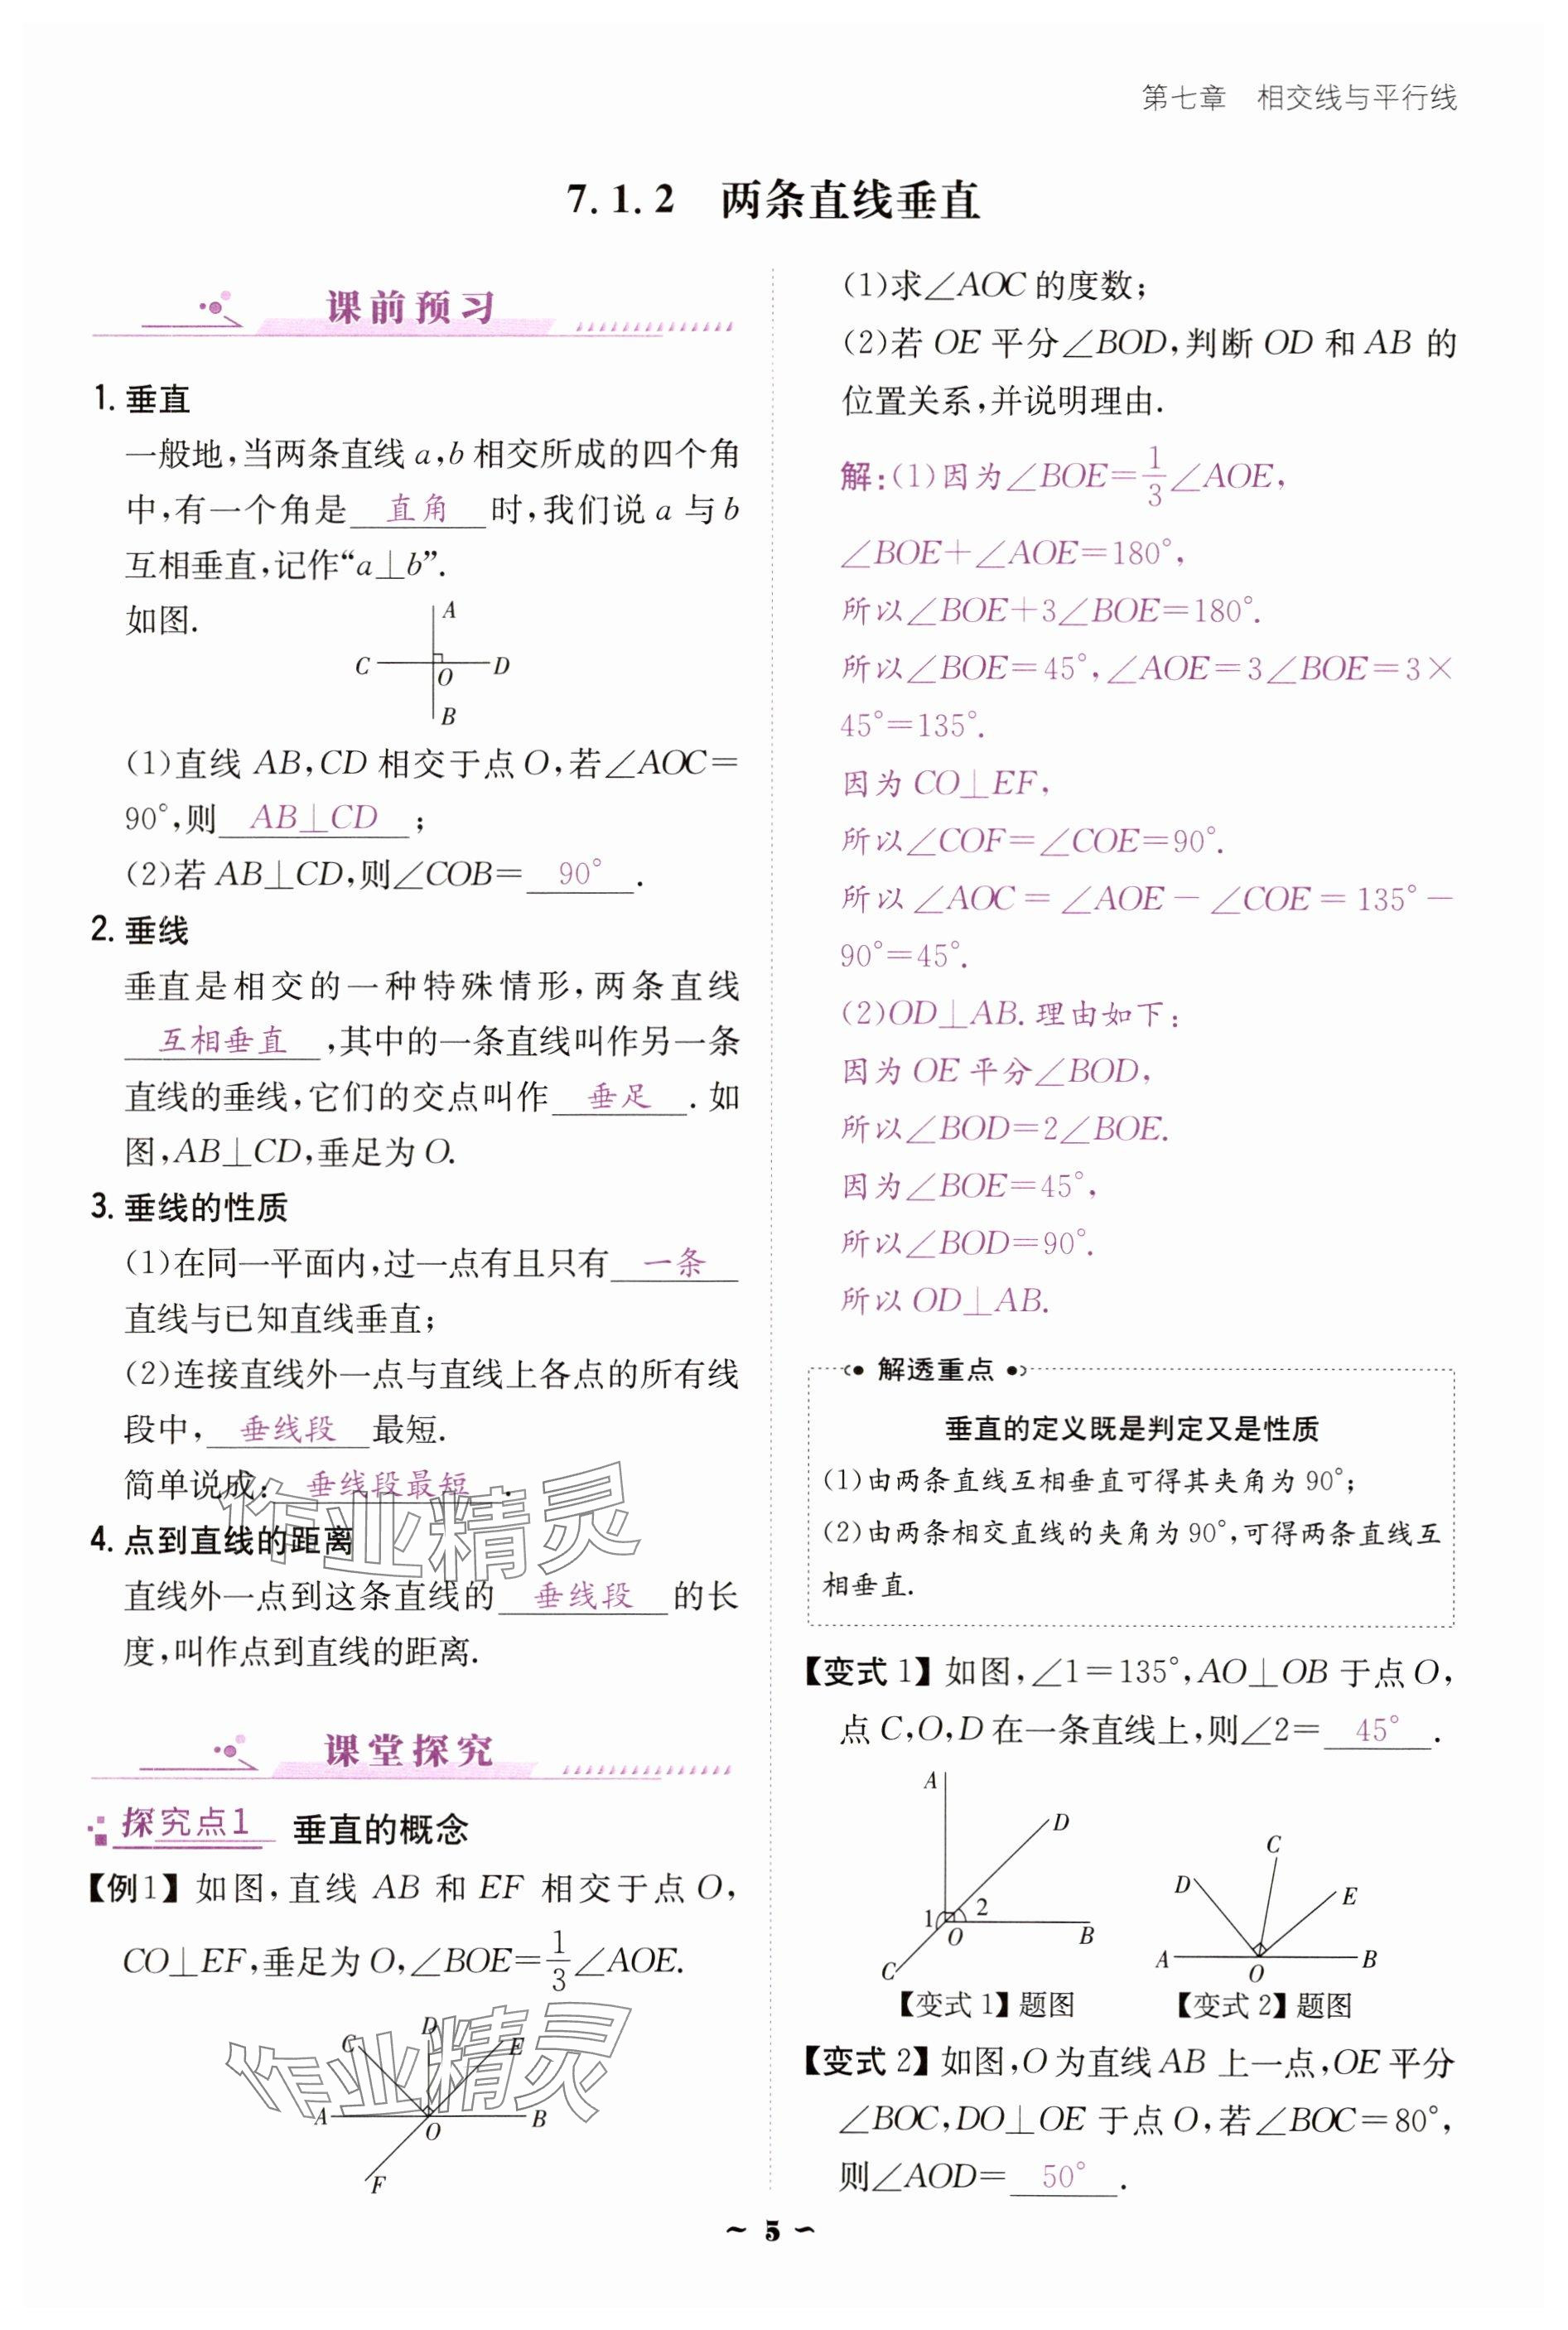 第七章 相交线与平行线
7.1.2 两条直线垂直
课前预习
1. 垂直
一般地,当两条直线 a,b 相交所成的四个角
中,有一个角是 直角 时,我们说 a 与 b
互相垂直,记作“a⊥b”.
如图.
A
C
D
O
B
(1)直线 AB,CD 相交于点 O,若∠AOC=
90°,则 AB⊥CD ;
(2)若 AB⊥CD,则∠COB= 90° .
2. 垂线
垂直是相交的一种特殊情形,两条直线
互相垂直 ,其中的一条直线叫作另一条
直线的垂线,它们的交点叫作 垂足 . 如
图,AB⊥CD,垂足为 O.
3. 垂线的性质
(1)在同一平面内,过一点有且只有 一条
直线与已知直线垂直;
(2)连接直线外一点与直线上各点的所有线
段中, 垂线段 最短.
简单说成: 垂线段最短 .
4. 点到直线的距离
直线外一点到这条直线的 垂线段 的长
度,叫作点到直线的距离.
作业精灵
课堂探究
探究点1 垂直的概念
【例1】 如图,直线 AB 和 EF 相交于点 O,
CO⊥EF,垂足为 O,∠BOE=1/3∠AOE.
C
D
E
A
O
B
F
作业精灵
(1)求∠AOC 的度数;
(2)若 OE 平分∠BOD,判断 OD 和 AB 的
位置关系,并说明理由.
解:(1)因为∠BOE=1/3∠AOE,
∠BOE+∠AOE=180°,
所以∠BOE+3∠BOE=180°.
所以∠BOE=45°,∠AOE=3∠BOE=3×
45°=135°.
因为 CO⊥EF,
所以∠COF=∠COE=90°.
所以∠AOC=∠AOE-∠COE=135°-
90°=45°.
(2)OD⊥AB. 理由如下:
因为 OE 平分∠BOD,
所以∠BOD=2∠BOE.
因为∠BOE=45°,
所以∠BOD=90°.
所以 OD⊥AB.
解透重点
垂直的定义既是判定又是性质
(1)由两条直线互相垂直可得其夹角为 90°;
(2)由两条相交直线的夹角为 90°,可得两条直线互
相垂直.
【变式 1】 如图,∠1=135°,AO⊥OB 于点 O,
点 C,O,D 在一条直线上,则∠2= 45° .
A
D
1
2
O
B
C
【变式 1】题图
C
D
E
A
O
B
【变式 2】题图
【变式 2】如图,O 为直线 AB 上一点,OE 平分
∠BOC,DO⊥OE 于点 O,若∠BOC=80°,
则∠AOD= 50° .
~ 5 ~